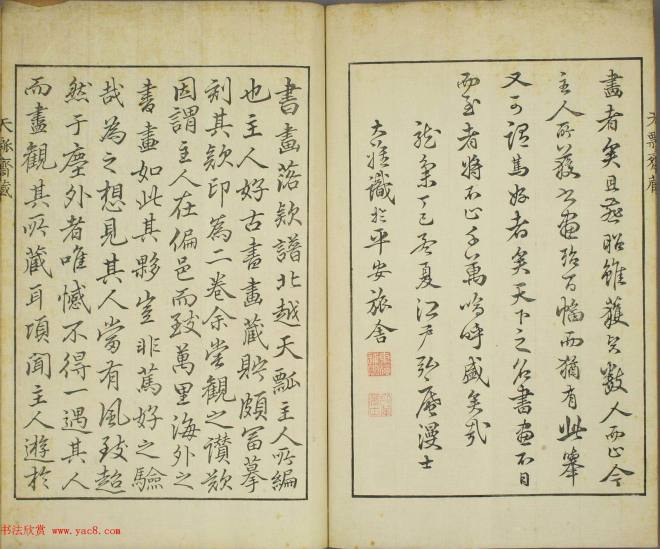 畫者矣且昭雖獲數人而止今
主人所獲書畫殆百幅而猶有此舉
又可謂篤好者矣天下之名書畫不日
而至者將不止千萬嗚呼盛矣哉
龍集丁巳孟夏江戶漫士
識於平安旅舍
書畫落欵譜北越天瓢主人所編
也主人好古書畫藏貯頗富摹
刻其欵印為二卷余嘗觀之讃歎
因謂主人在偏邑而致萬里海外之
書畫如此其夥豈非篤好之驗
哉為之想見其人當有風致超
然于塵外者唯憾不得一遇其人
而盡觀其所藏耳頃聞主人遊於
天瓢齋藏
书法欣赏 www.yac8.com